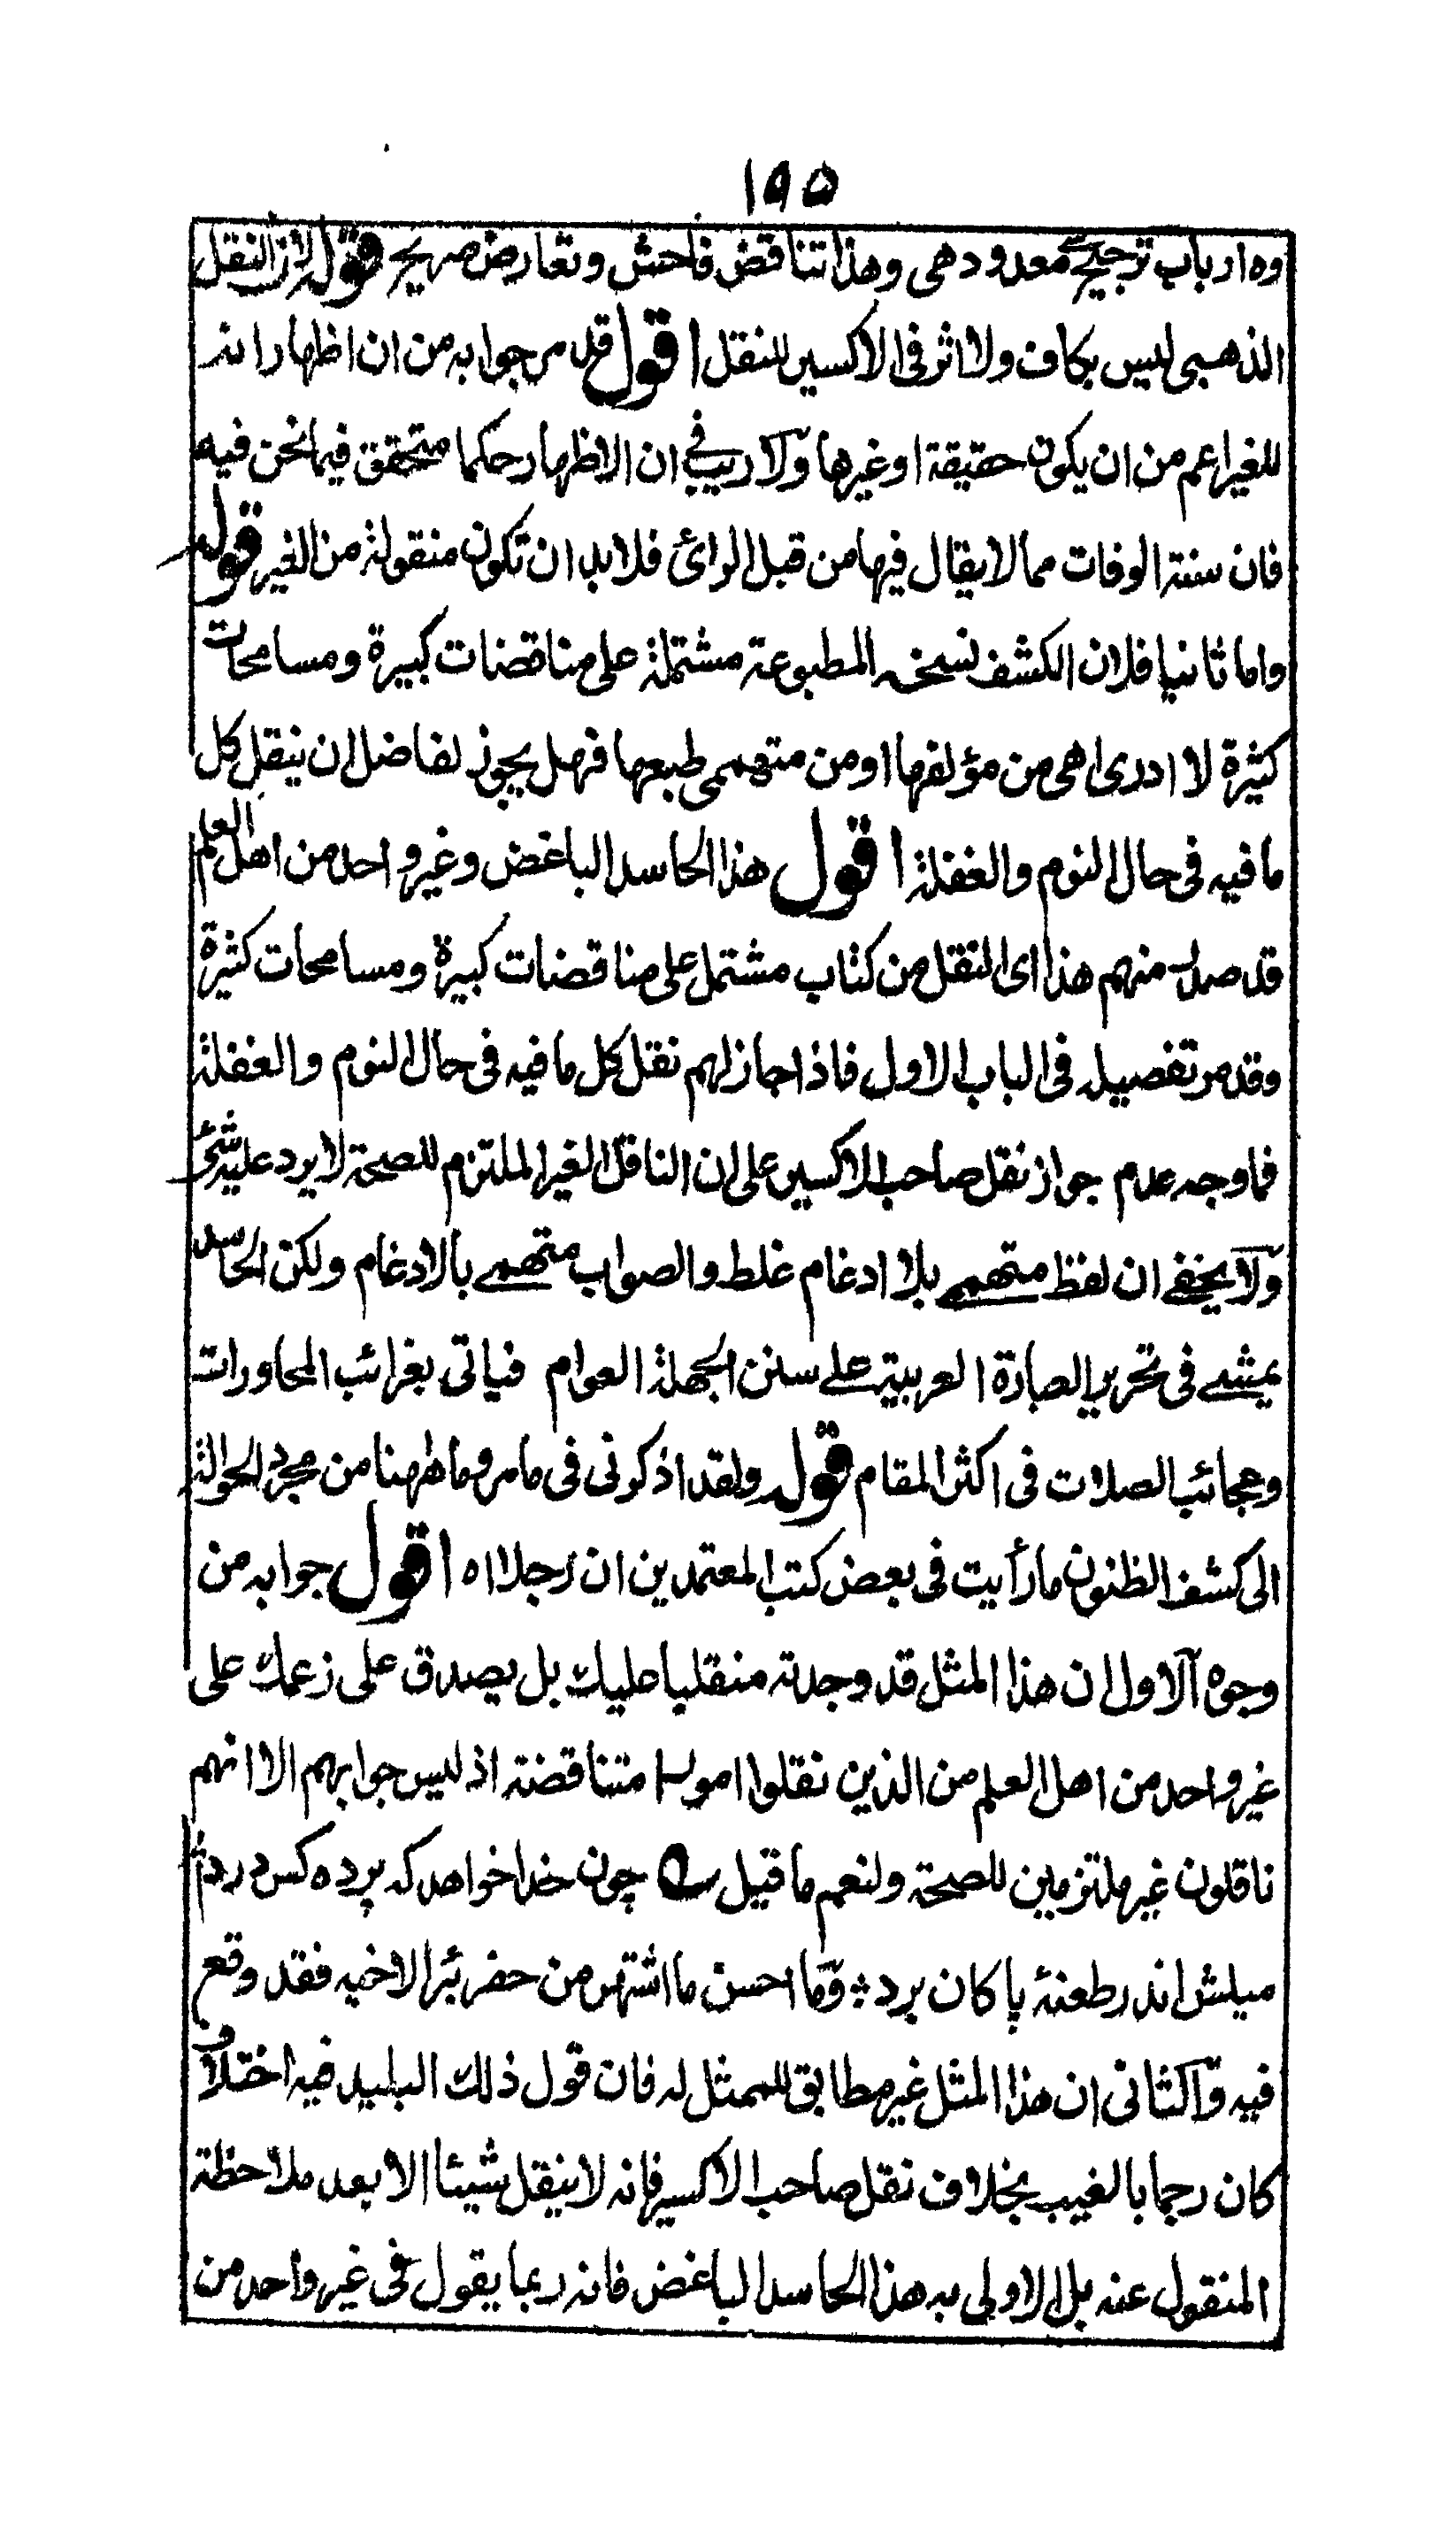 ١٩٥
وه ارباب ترجيح معدودهى وهذا تناقض فاحش وتعارض صريح قوله لان النقل
الذهبى ليس بكاف ولا اثر فى الاكسير للنقل اقول قد مر جوابه من ان اظهار انه
للغير اعم من ان يكون حقيقة او غيرها ولا ريب فى ان الاظهار حكما متحقق فيما نحن فيه
فان سنة الوفات مما لا يقال فيها من قبل الرائ فلا بد ان تكون منقولة من الغير قوله
واما ثانيا فلان الكشف نسخه المطبوعة مشتملة على مناقضات كبيرة ومسامحات
كثيرة لا ادرى اهى من مؤلفها او من متهممى طبعها فهل يجوز لفاضل ان ينقل كل
ما فيه فى حال النوم والغفلة اقول هذا الحاسد الباغض وغير واحد من اهل العلم
قد صدر منهم هذا اى النقل من كتاب مشتمل على مناقضات كبيرة ومسامحات كثيرة
وقد مر تفصيله فى الباب الاول فاذا جاز لهم نقل كل ما فيه فى حال النوم والغفلة
فما وجه عدم جواز نقل صاحب الاكسير على ان الناقل الغير الملتزم للصحة لا يرد عليه شئ
ولا يخفى ان لفظ متهممى بلا ادغام غلط والصواب متهمى بالادغام ولكن الحاسد
يمشى فى تحرير العبارة العربية على سنن الجهلة العوام فياتى بغرائب المحاورات
وعجائب الصلات فى اكثر المقام قوله ولقد اذكرنى فى ما مر وما ههنا من مجرد الحوالة
الى كشف الظنون ما رأيت فى بعض كتب المعتمدين ان رجلا اه اقول جوابه من
وجوه الاول ان هذا المثل قد وجدته منقلبا عليك بل يصدق على زعمك على
غير واحد من اهل العلم من الذين نقلوا امورا متناقضة اذ ليس جوابهم الا انهم
ناقلون غير ملتزمين للصحة ولنعم ما قيل ؎ چون خدا خواهد كه پرده كس درد ؞
ميلش اندر طعنۀ پاكان برد ؞ وما احسن ما اشتهر من حفر بئرا لاخيه فقد وقع
فيه والثانى ان هذا المثل غير مطابق للممثل له فان قول ذلك البليد فيه اختلاف
كان رجما بالغيب بخلاف نقل صاحب الاكسير فانه لا ينقل شيئا الا بعد ملاحظة
المنقول عنه بل الاولى به هذا الحاسد الباغض فانه ربما يقول فى غير واحد من